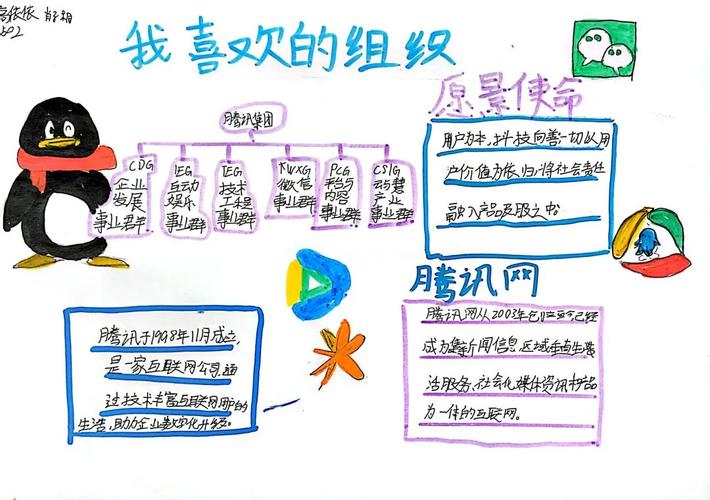 502
我喜欢的组织
愿景使命
腾讯集团
CDG
企业
发展
事业群
IEG
互动
娱乐
事业群
TEG
技术
工程
事业群
WXG
微信
事业群
PCG
平台与
内容
事业群
CSIG
云与慧
产业
事业群
用户为本,科技向善一切以用
户价值为依归,将社会责任
融入产品及服之中
腾讯网
腾讯于1998年11月成立,
是一家互联网公司,通
过技术丰富互联网用户的
生活,助力企业数字化升级。
腾讯网从2003年创立至今已经
成为集新闻信息,区域垂直生
活服务、社会化媒体资讯和产品
为一体的互联网。